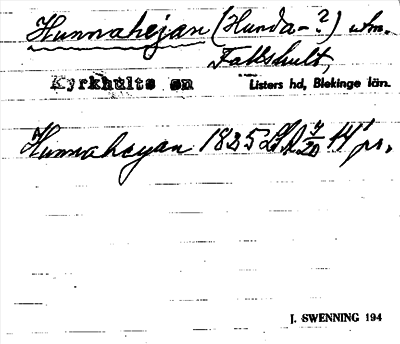 Hunnahejan (Hunda-?) utm.
Fallshult,
Kyrkhults sn Listers hd, Blekinge län.
Hunnaheyan 1825 44 pr.
J. SWENNING 194